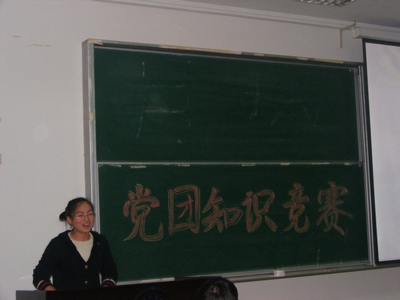 党团知识竞赛